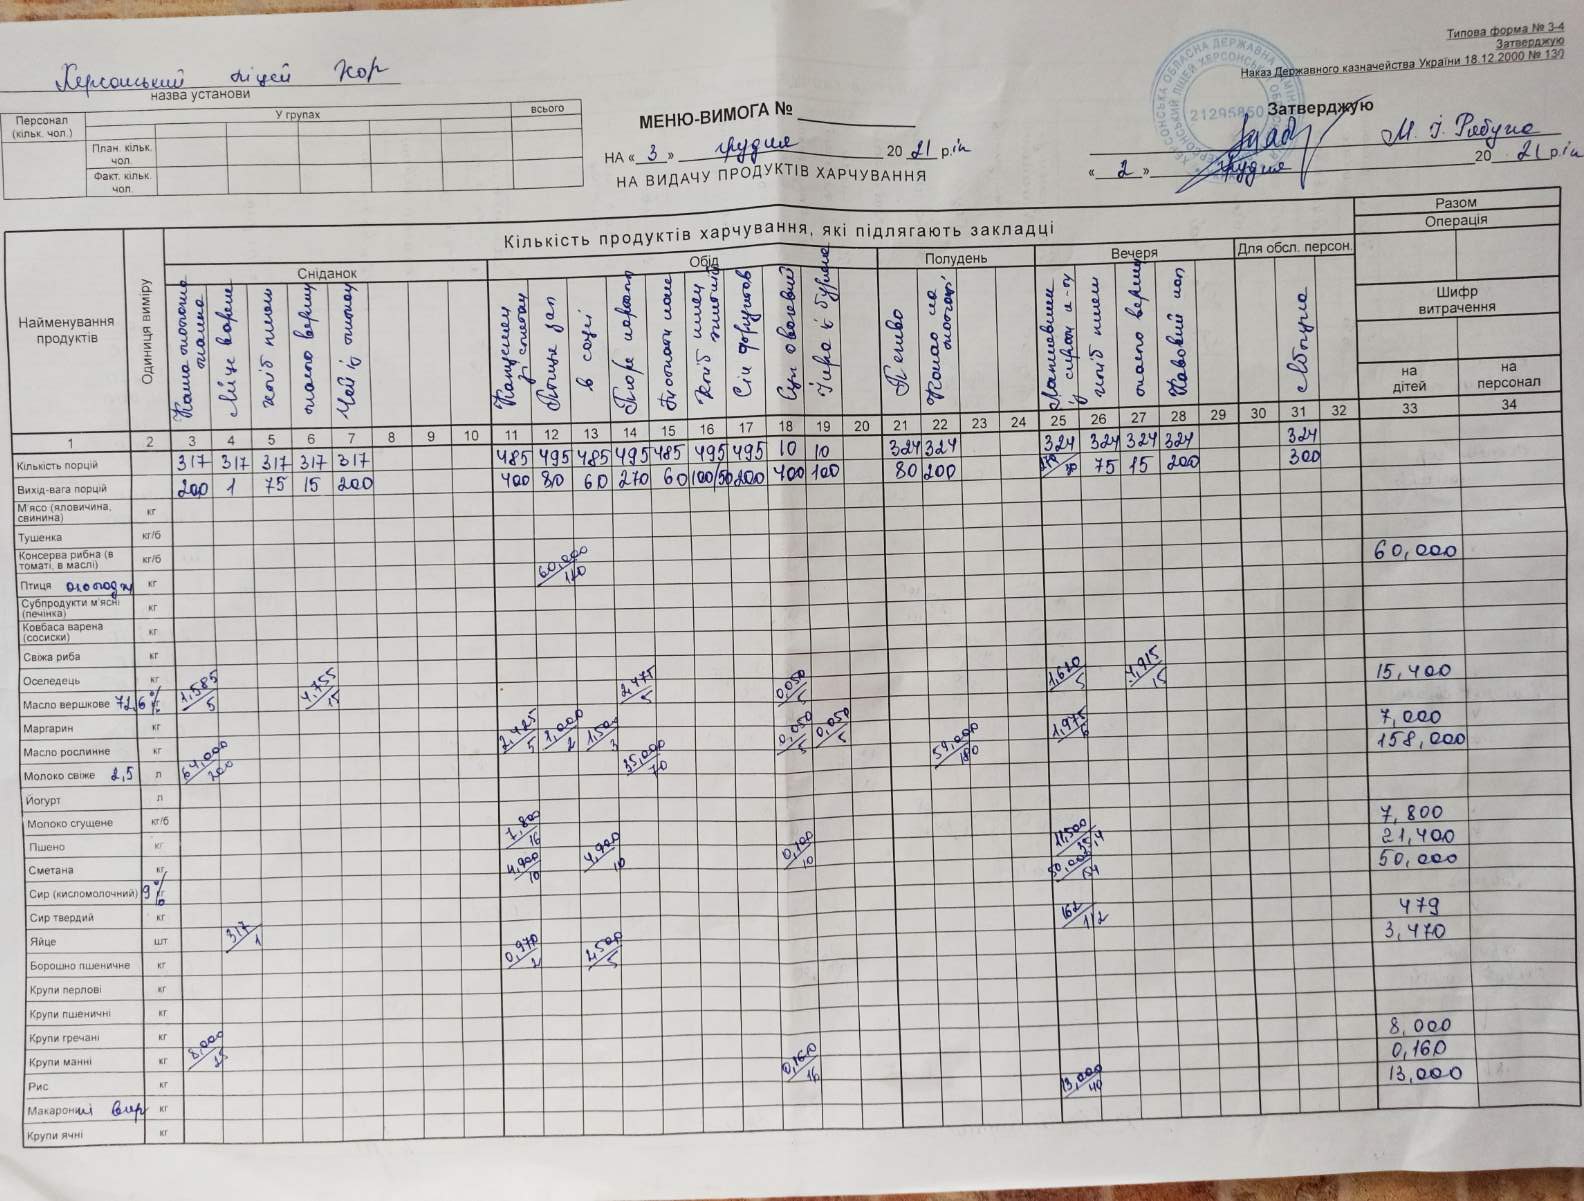 Типова форма № 3-4
Затверджую
Наказ Державного казначейства України 18.12.2000 № 130
Херсонський ліцей ХОР
назва установи
Персонал (кільк. чол.) У групах всього
План. кільк. чол.
Факт. кільк. чол.
МЕНЮ-ВИМОГА №
НА « 3 » грудня 20 21 р.ік
НА ВИДАЧУ ПРОДУКТІВ ХАРЧУВАННЯ
21295850
Затверджую
М. І. Рябуха
« 2 » грудня 20 21 р.ік
Найменування продуктів
Одиниця виміру
Кількість продуктів харчування, які підлягають закладці
Разом
Операція
Шифр витрачення
на дітей
на персонал
Сніданок Обід Полудень Вечеря Для обсл. персон.
Каша молочна манна
Яйце варене
Хліб пшен
Масло верш
Чай з
Капусняк з сметан
Птиця зап
в соусі
Пюре картоп
Хліб пшен житній
Сік фруктов
Суп овочевий
Ікра з буряка
Печиво
Какао на молоці
Запіканка з сиром
Хліб пшен
Масло верш
Кавовий нап
Яблука
1 2 3 4 5 6 7 8 9 10 11 12 13 14 15 16 17 18 19 20 21 22 23 24 25 26 27 28 29 30 31 32 33 34
Кількість порцій 317 317 317 317 317 485 495 485 495 485 495 495 10 10 324 324 324 324 324 324 324
Вихід-вага порцій 200 1 75 15 200 400 80 60 270 60 100/50 200 400 100 80 200 75 15 200 300
М'ясо (яловичина, свинина) кг
Тушенка кг/б
Консерва рибна (в томаті, в маслі) кг/б
Птиця охолодж кг 60,000/120 60,000
Субпродукти м'ясні (печінка) кг
Ковбаса варена (сосиски) кг
Свіжа риба кг
Оселедець кг
Масло вершкове 72,6 % кг 1,585/5 4,755/15 2,475/5 0,050/5 1,620/5 4,915/15 15,400
Маргарин кг
Масло рослинне кг 2,425/5 1,000/2 1,500/3 0,050/5 0,050/5 1,975/6 7,000
Молоко свіже 2,5 л 64,000/200 35,000/70 59,000/180 158,000
Йогурт л
Молоко сгущене кг/б
Пшено кг 7,800/16 7,800
Сметана кг 4,900/10 4,900/10 0,100/10 11,500 21,400
Сир (кисломолочний) 9 % кг 50,000 50,000
Сир твердий кг
Яйце шт 317/1 162/1/2 479
Борошно пшеничне кг 0,970/2 2,500/5 3,470
Крупи перлові кг
Крупи пшеничні кг
Крупи гречані кг
Крупи манні кг 8,000/25 8,000
Рис кг 0,160/16 0,160
Макаронні вир кг 13,000/40 13,000
Крупи ячні кг